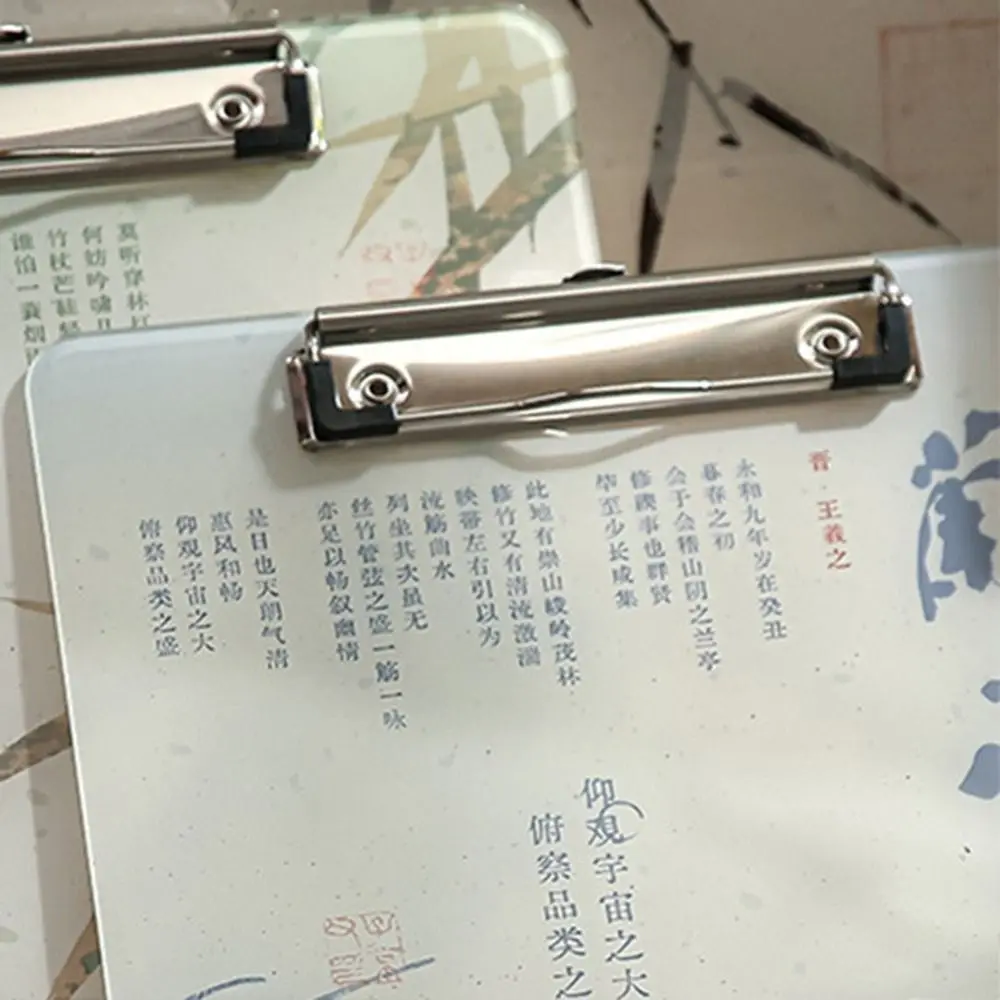 莫听穿林打
何妨吟啸且
竹杖芒鞋轻
谁怕一蓑烟
晋·王羲之
永和九年岁在癸丑
暮春之初
会于会稽山阴之兰亭
修禊事也群贤
毕至少长咸集
此地有崇山峻岭茂林
修竹又有清流激湍
映带左右引以为
流觞曲水
列坐其次虽无
丝竹管弦之盛一觞一咏
亦足以畅叙幽情
是日也天朗气清
惠风和畅
仰观宇宙之大
俯察品类之盛
仰观宇宙之大
俯察品类之